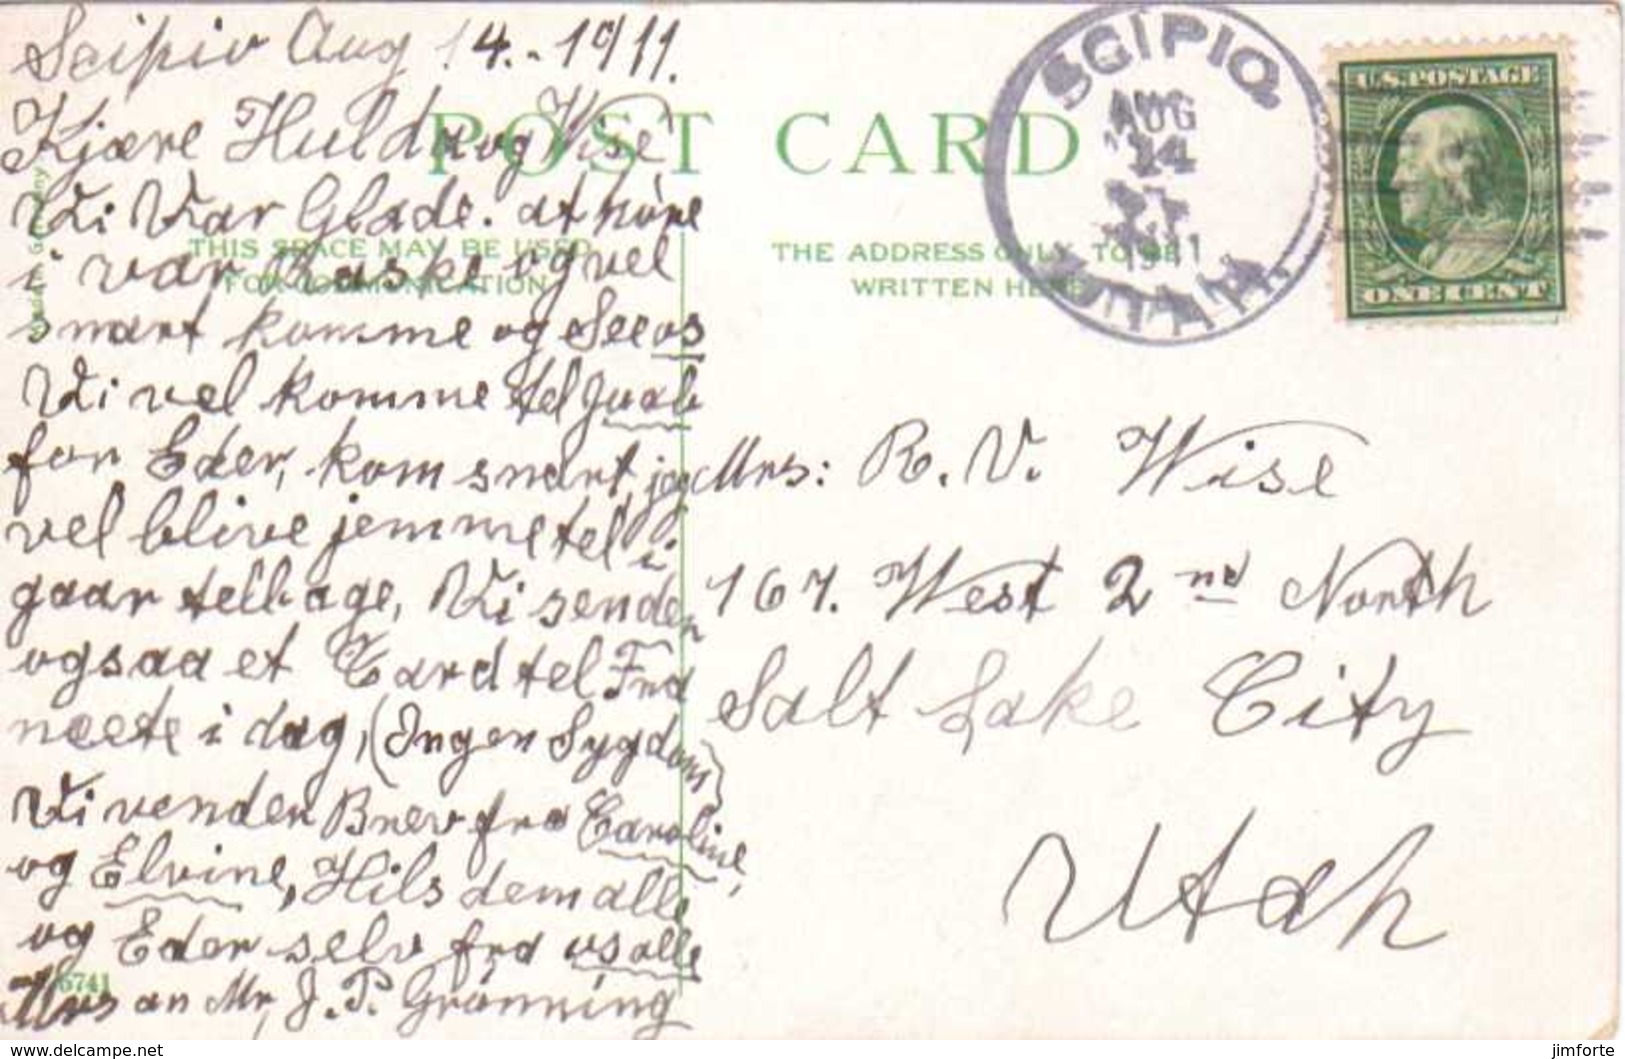 Scipio Aug 14.-1911.
Kjære Hulda og Wise
Vi Var Glade. at höre
i var Raske og vel
snart komme og See os
Vi vel komme tel Juab
for Eder, kom snart, jeg
vel blive jemme tel i
gaar telbage, Vi sender
ogsaa et Card tel Fra
neete i dag, (Ingen Sygdom)
Vi venden Brev fra Caroline,
og Elvine, Hils dem alle
og Eder selv fra os alle
Mrs an Mr, J. P. Grönning
POST CARD
THIS SPACE MAY BE USED
FOR COMMUNICATION
THE ADDRESS ONLY TO BE
WRITTEN HERE
Germany
6741
SCIPIO,
AUG
14
1911
UTAH
U.S. POSTAGE
ONE CENT
Mrs: R. V. Wise
167. West 2nd North
Salt Lake City
Utah
www.delcampe.net
jimforte